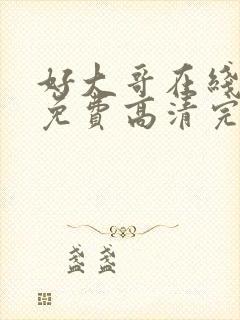 好大哥在綫
免費高清完
盞盞